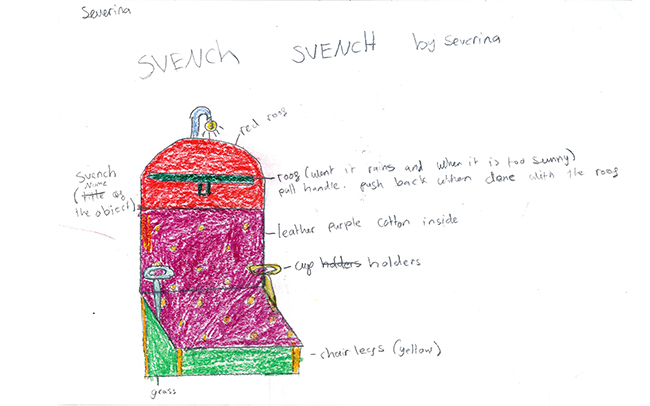 Severina
SVENCH SVENCH by Severina
red roof
roof (went it rains and when it is too sunny)
pull handle. push back when done with the roof
Svench
Name
(title of
the object)
leather purple cotton inside
cup holders holders
chair legs (yellow)
grass